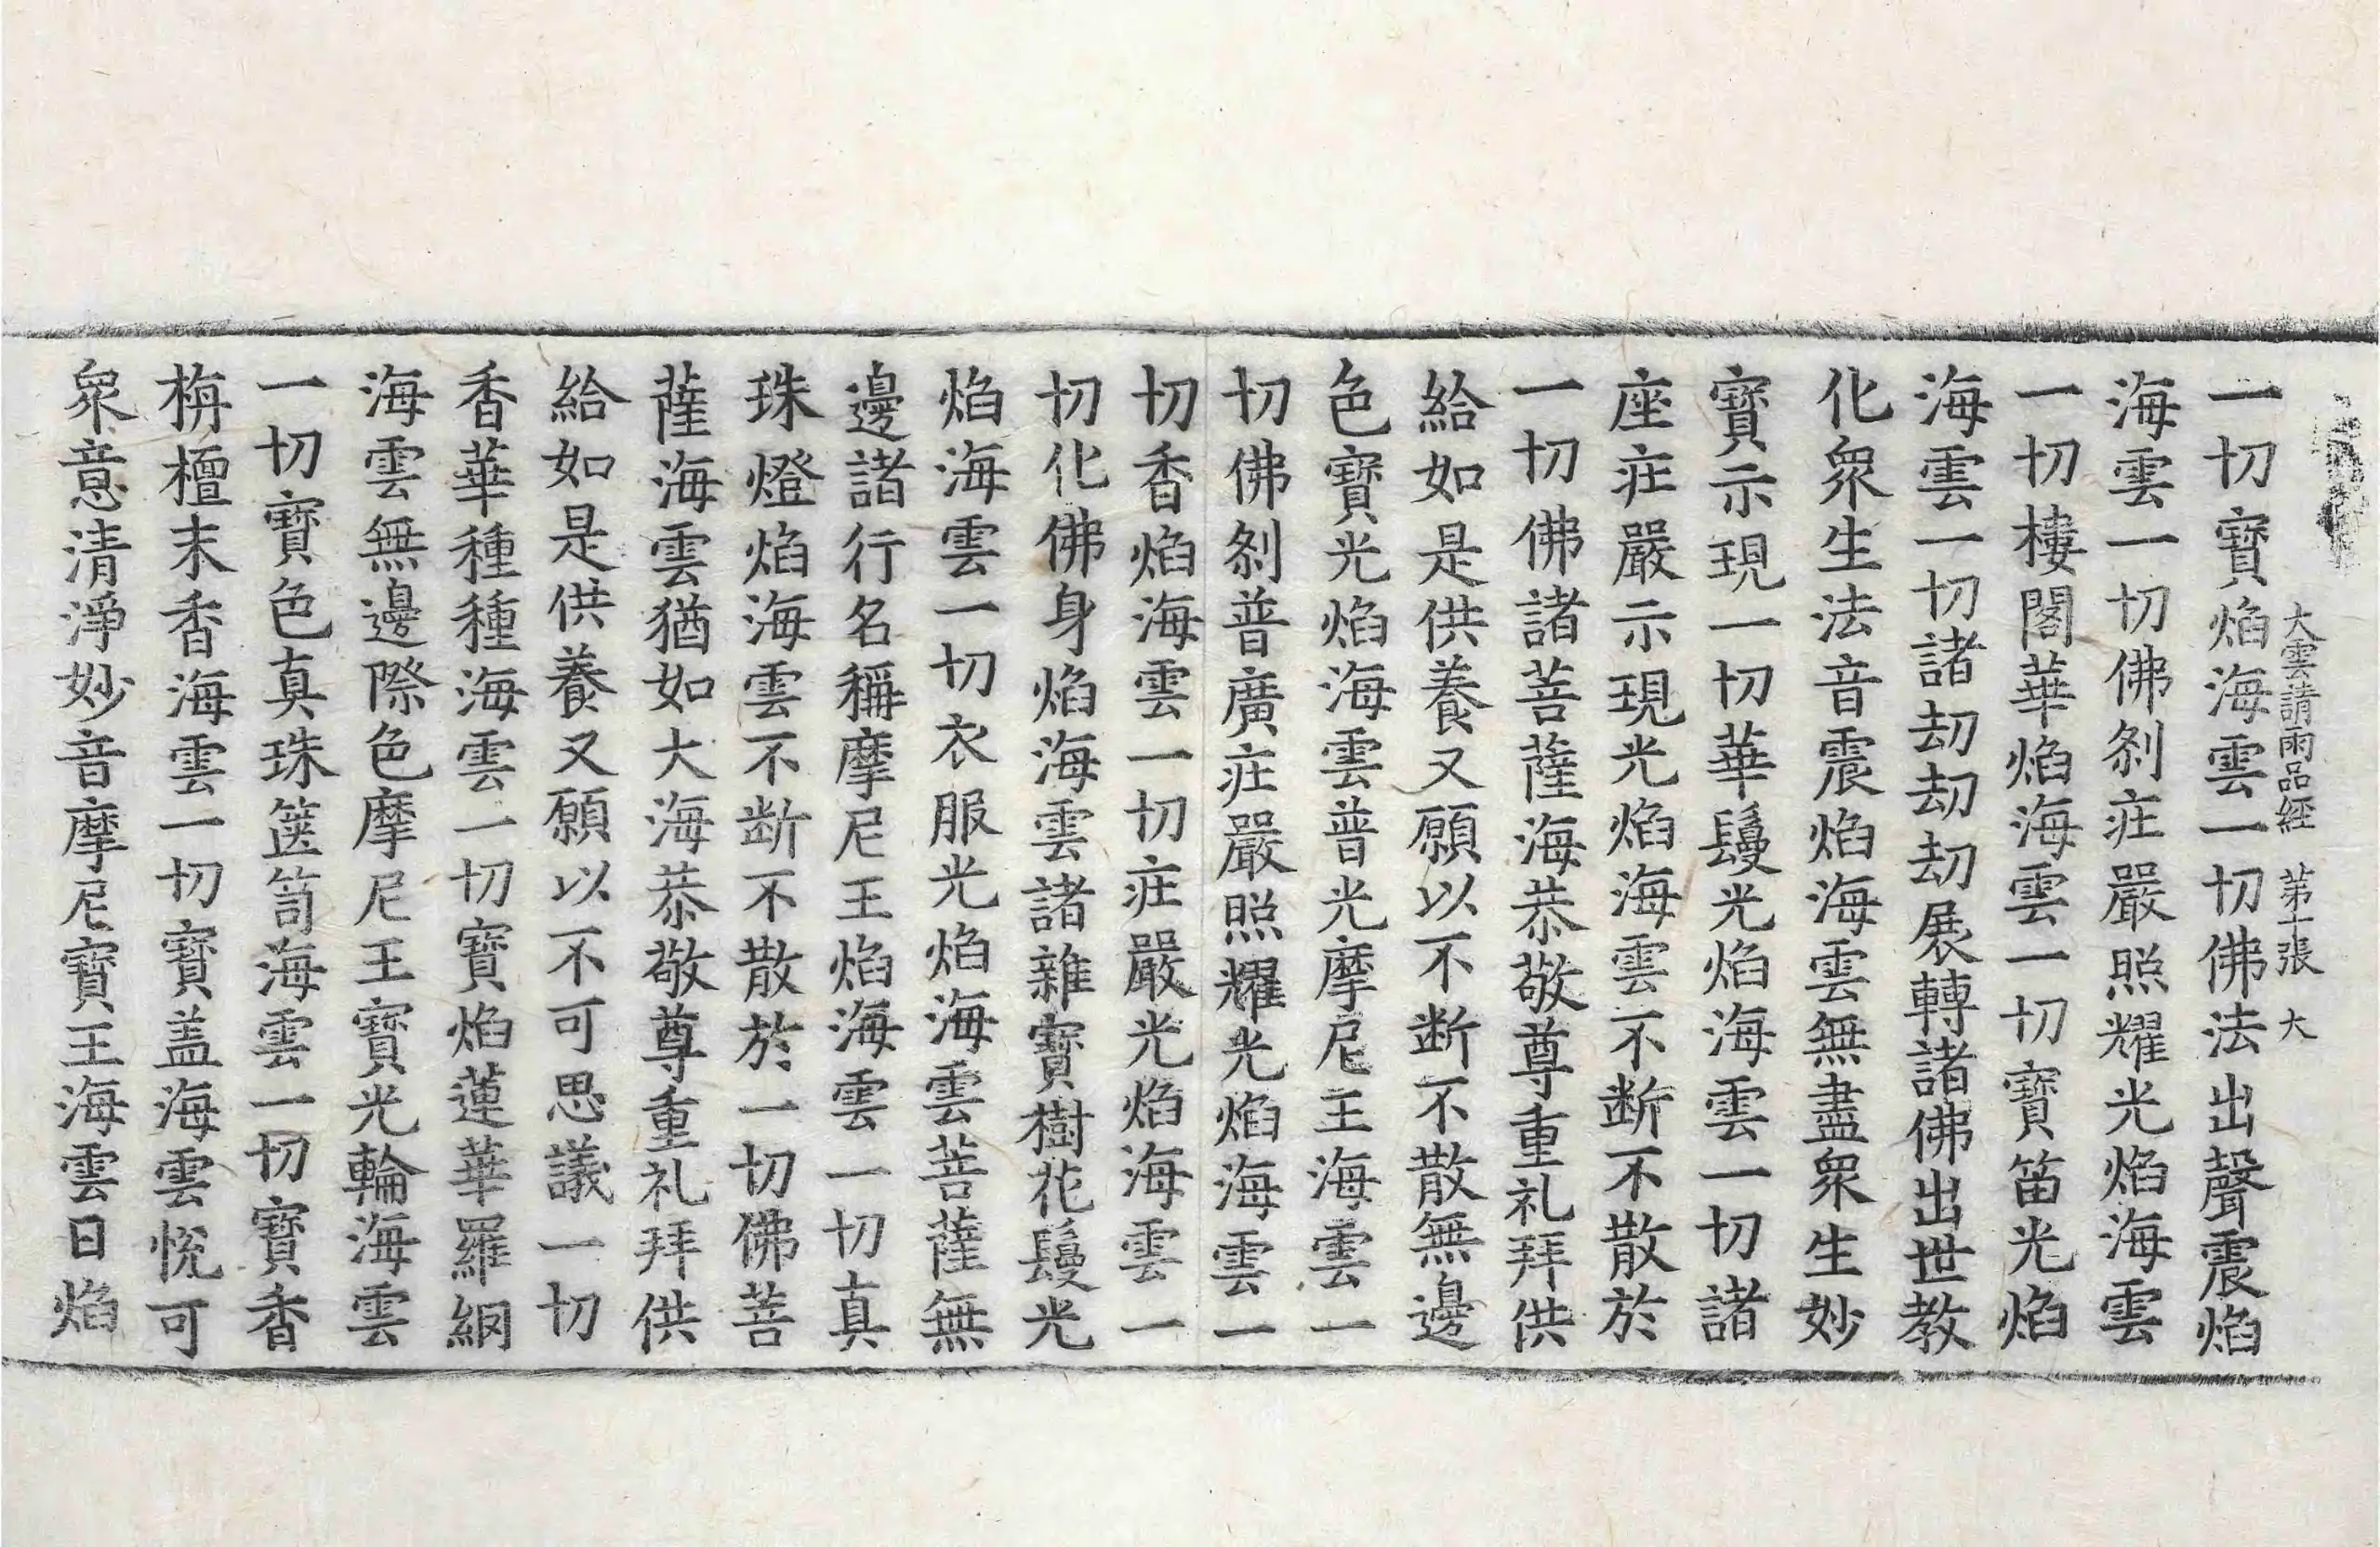 大雲請雨品經 第十張 大
一切寶焰海雲一切佛法出聲震焰
海雲一切佛剎莊嚴照耀光焰海雲
一切樓閣華焰海雲一切寶笛光焰
海雲一切諸劫劫劫展轉諸佛出世教
化眾生法音震焰海雲無盡眾生妙
寶示現一切華鬘光焰海雲一切諸
座莊嚴示現光焰海雲不断不散於
一切佛諸菩薩海恭敬尊重礼拜供
給如是供養又願以不断不散無邊
色寶光焰海雲普光摩尼主海雲一
切佛剎普廣莊嚴照耀光焰海雲一
切香焰海雲一切莊嚴光焰海雲一
切化佛身焰海雲諸雜寶樹花鬘光
焰海雲一切衣服光焰海雲菩薩無
邊諸行名稱摩尼王焰海雲一切真
珠燈焰海雲不断不散於一切佛菩
薩海雲猶如大海恭敬尊重礼拜供
給如是供養又願以不可思議一切
香華種種海雲一切寶焰蓮華羅網
海雲無邊際色摩尼王寶光輪海雲
一切寶色真珠篋笥海雲一切寶香
栴檀末香海雲一切寶盖海雲悅可
眾意清淨妙音摩尼寶王海雲日焰